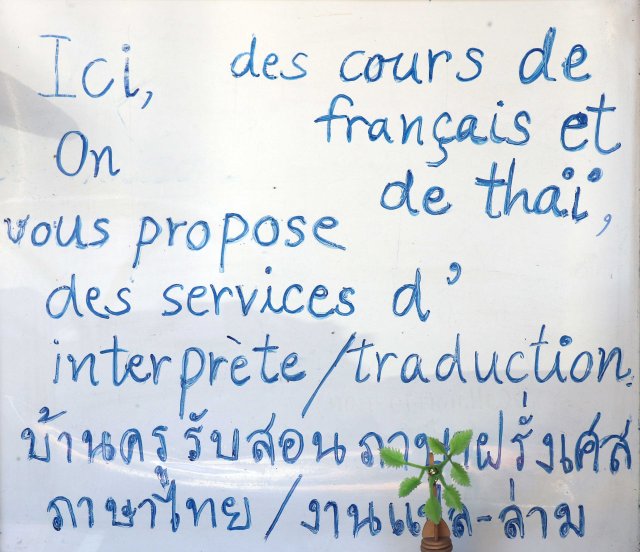 Ici,
On
vous propose
des cours de
français et
de thaï,
des services d'
interprète/traduction.
บ้านครูรับสอน ภาษาฝรั่งเศส
ภาษาไทย / งานแปล-ล่าม